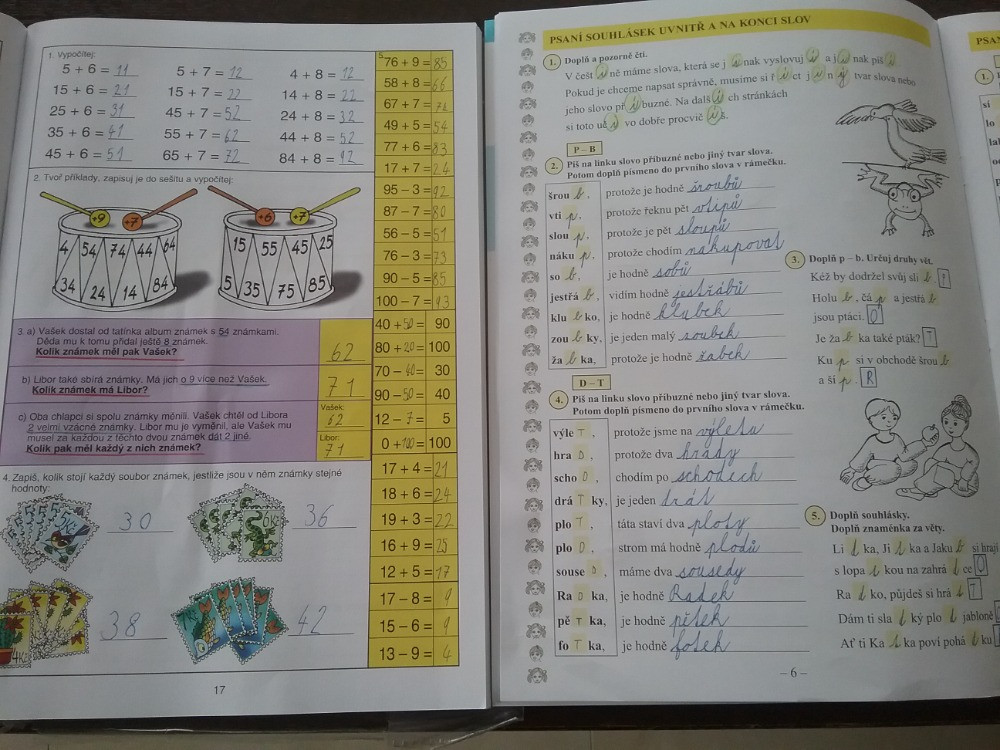 1. Vypočítej:
5 + 6 = 11 5 + 7 = 12 4 + 8 = 12
15 + 6 = 21 15 + 7 = 22 14 + 8 = 22
25 + 6 = 31 45 + 7 = 52 24 + 8 = 32
35 + 6 = 41 55 + 7 = 62 44 + 8 = 52
45 + 6 = 51 65 + 7 = 72 84 + 8 = 92
2. Tvoř příklady, zapisuj je do sešitu a vypočítej:
+9 +7 +6 +7
4 54 74 44 64
34 24 14 84
15 55 45 25
5 35 75 85
3. a) Vašek dostal od tatínka album známek s 54 známkami.
Děda mu k tomu přidal ještě 8 známek.
Kolik známek měl pak Vašek?
62
b) Libor také sbírá známky. Má jich o 9 více než Vašek.
Kolik známek má Libor?
71
c) Oba chlapci si spolu známky měnili. Vašek chtěl od Libora
2 velmi vzácné známky. Libor mu je vyměnil, ale Vašek mu
musel za každou z těchto dvou známek dát 2 jiné.
Kolik pak měl každý z nich známek?
Vašek:
62
Libor:
71
4. Zapiš, kolik stojí každý soubor známek, jestliže jsou v něm známky stejné
hodnoty:
30 36
38 42
5.
76 + 9 = 85
58 + 8 = 66
67 + 7 = 74
49 + 5 = 54
77 + 6 = 83
17 + 7 = 24
95 − 3 = 92
87 − 7 = 80
56 − 5 = 51
76 − 3 = 73
90 − 5 = 85
100 − 7 = 93
40 + 50 = 90
80 + 20 = 100
70 − 40 = 30
90 − 50 = 40
12 − 7 = 5
0 + 100 = 100
17 + 4 = 21
18 + 6 = 24
19 + 3 = 22
16 + 9 = 25
12 + 5 = 17
17 − 8 = 9
15 − 6 = 9
13 − 9 = 4
17
PSANÍ SOUHLÁSEK UVNITŘ A NA KONCI SLOV
1. Doplň a pozorně čti.
V češt i ně máme slova, která se j i nak vyslovuj í a j i nak píš í
Pokud je chceme napsat správně, musíme si ř í ct j i n ý tvar slova nebo
jeho slovo př í buzné. Na dalš í ch stránkách
si toto uč i vo dobře procvič í š.
P – B
2. Piš na linku slovo příbuzné nebo jiný tvar slova.
Potom doplň písmeno do prvního slova v rámečku.
šrou b , protože je hodně šroubů
vti p , protože řeknu pět vtipů
slou p , protože je pět sloupů
náku p , protože chodím nakupovat
so b , je hodně sobů
jestřá b , vidím hodně jestřábů
klu b ko, je hodně klubek
zou b ky, je jeden malý zoubek
ža b ka, protože je hodně žabek
D – T
4. Piš na linku slovo příbuzné nebo jiný tvar slova.
Potom doplň písmeno do prvního slova v rámečku.
výle T , protože jsme na výleta
hra D , protože dva hrady
scho D , chodím po schodech
drá T ky, je jeden drát
plo T , táta staví dva ploty
plo D , strom má hodně plodů
souse D , máme dva sousedy
Ra D ka, je hodně Radek
pě T ka, je hodně pětek
fo T ka, je hodně fotek
3. Doplň p – b. Určuj druhy vět.
Kéž by dodržel svůj sli b P
Holu b , čá p a jestřá b
jsou ptáci. O
Je ža b ka také pták? T
Ku p si v obchodě šrou b
a ši p R
5. Doplň souhlásky.
Doplň znaménka za věty.
Li t ka, Ji t ka a Jaku b si hrají
s lopa t kou na zahrá d ce O
Ra d ko, půjdeš si hrá t T
Dám ti sla d ký plo d jabloně
Ať ti Ka t ka poví pohá d ku
– 6 –
PSAN
1.
sí
lo